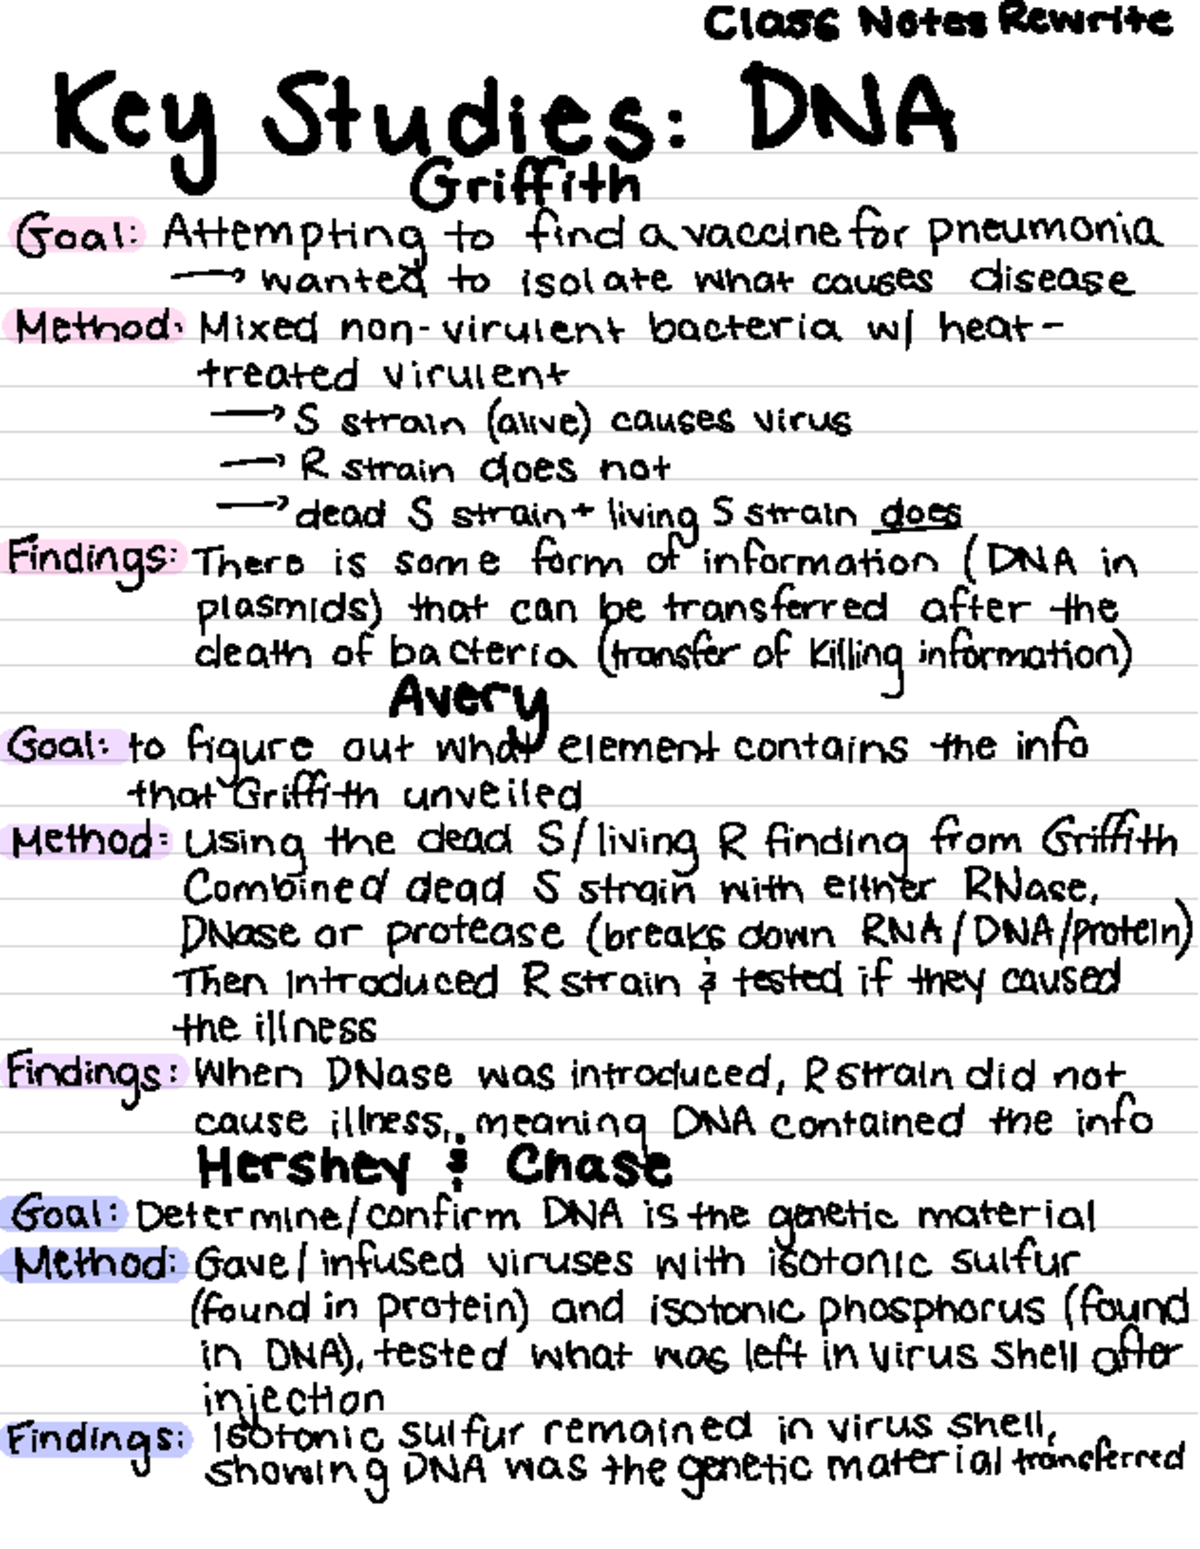 Class Notes Rewrite
Key Studies: DNA
Griffith
Goal: Attempting to find a vaccine for pneumonia
→ wanted to isolate what causes disease
Method: Mixed non-virulent bacteria w/ heat-
treated virulent
→ S strain (alive) causes virus
→ R strain does not
→ dead S strain + living S strain does
Findings: There is some form of information (DNA in
plasmids) that can be transferred after the
death of bacteria (transfer of killing information)
Avery
Goal: to figure out what element contains the info
that Griffith unveiled
Method: Using the dead S/living R finding from Griffith
Combined dead S strain with either RNase,
DNase or protease (breaks down RNA/DNA/protein)
Then introduced R strain & tested if they caused
the illness
Findings: When DNase was introduced, R strain did not
cause illness, meaning DNA contained the info
Hershey & Chase
Goal: Determine/confirm DNA is the genetic material
Method: Gave/infused viruses with isotonic sulfur
(found in protein) and isotonic phosphorus (found
in DNA), tested what was left in virus shell after
injection
Findings: Isotonic sulfur remained in virus shell,
showing DNA was the genetic material transferred